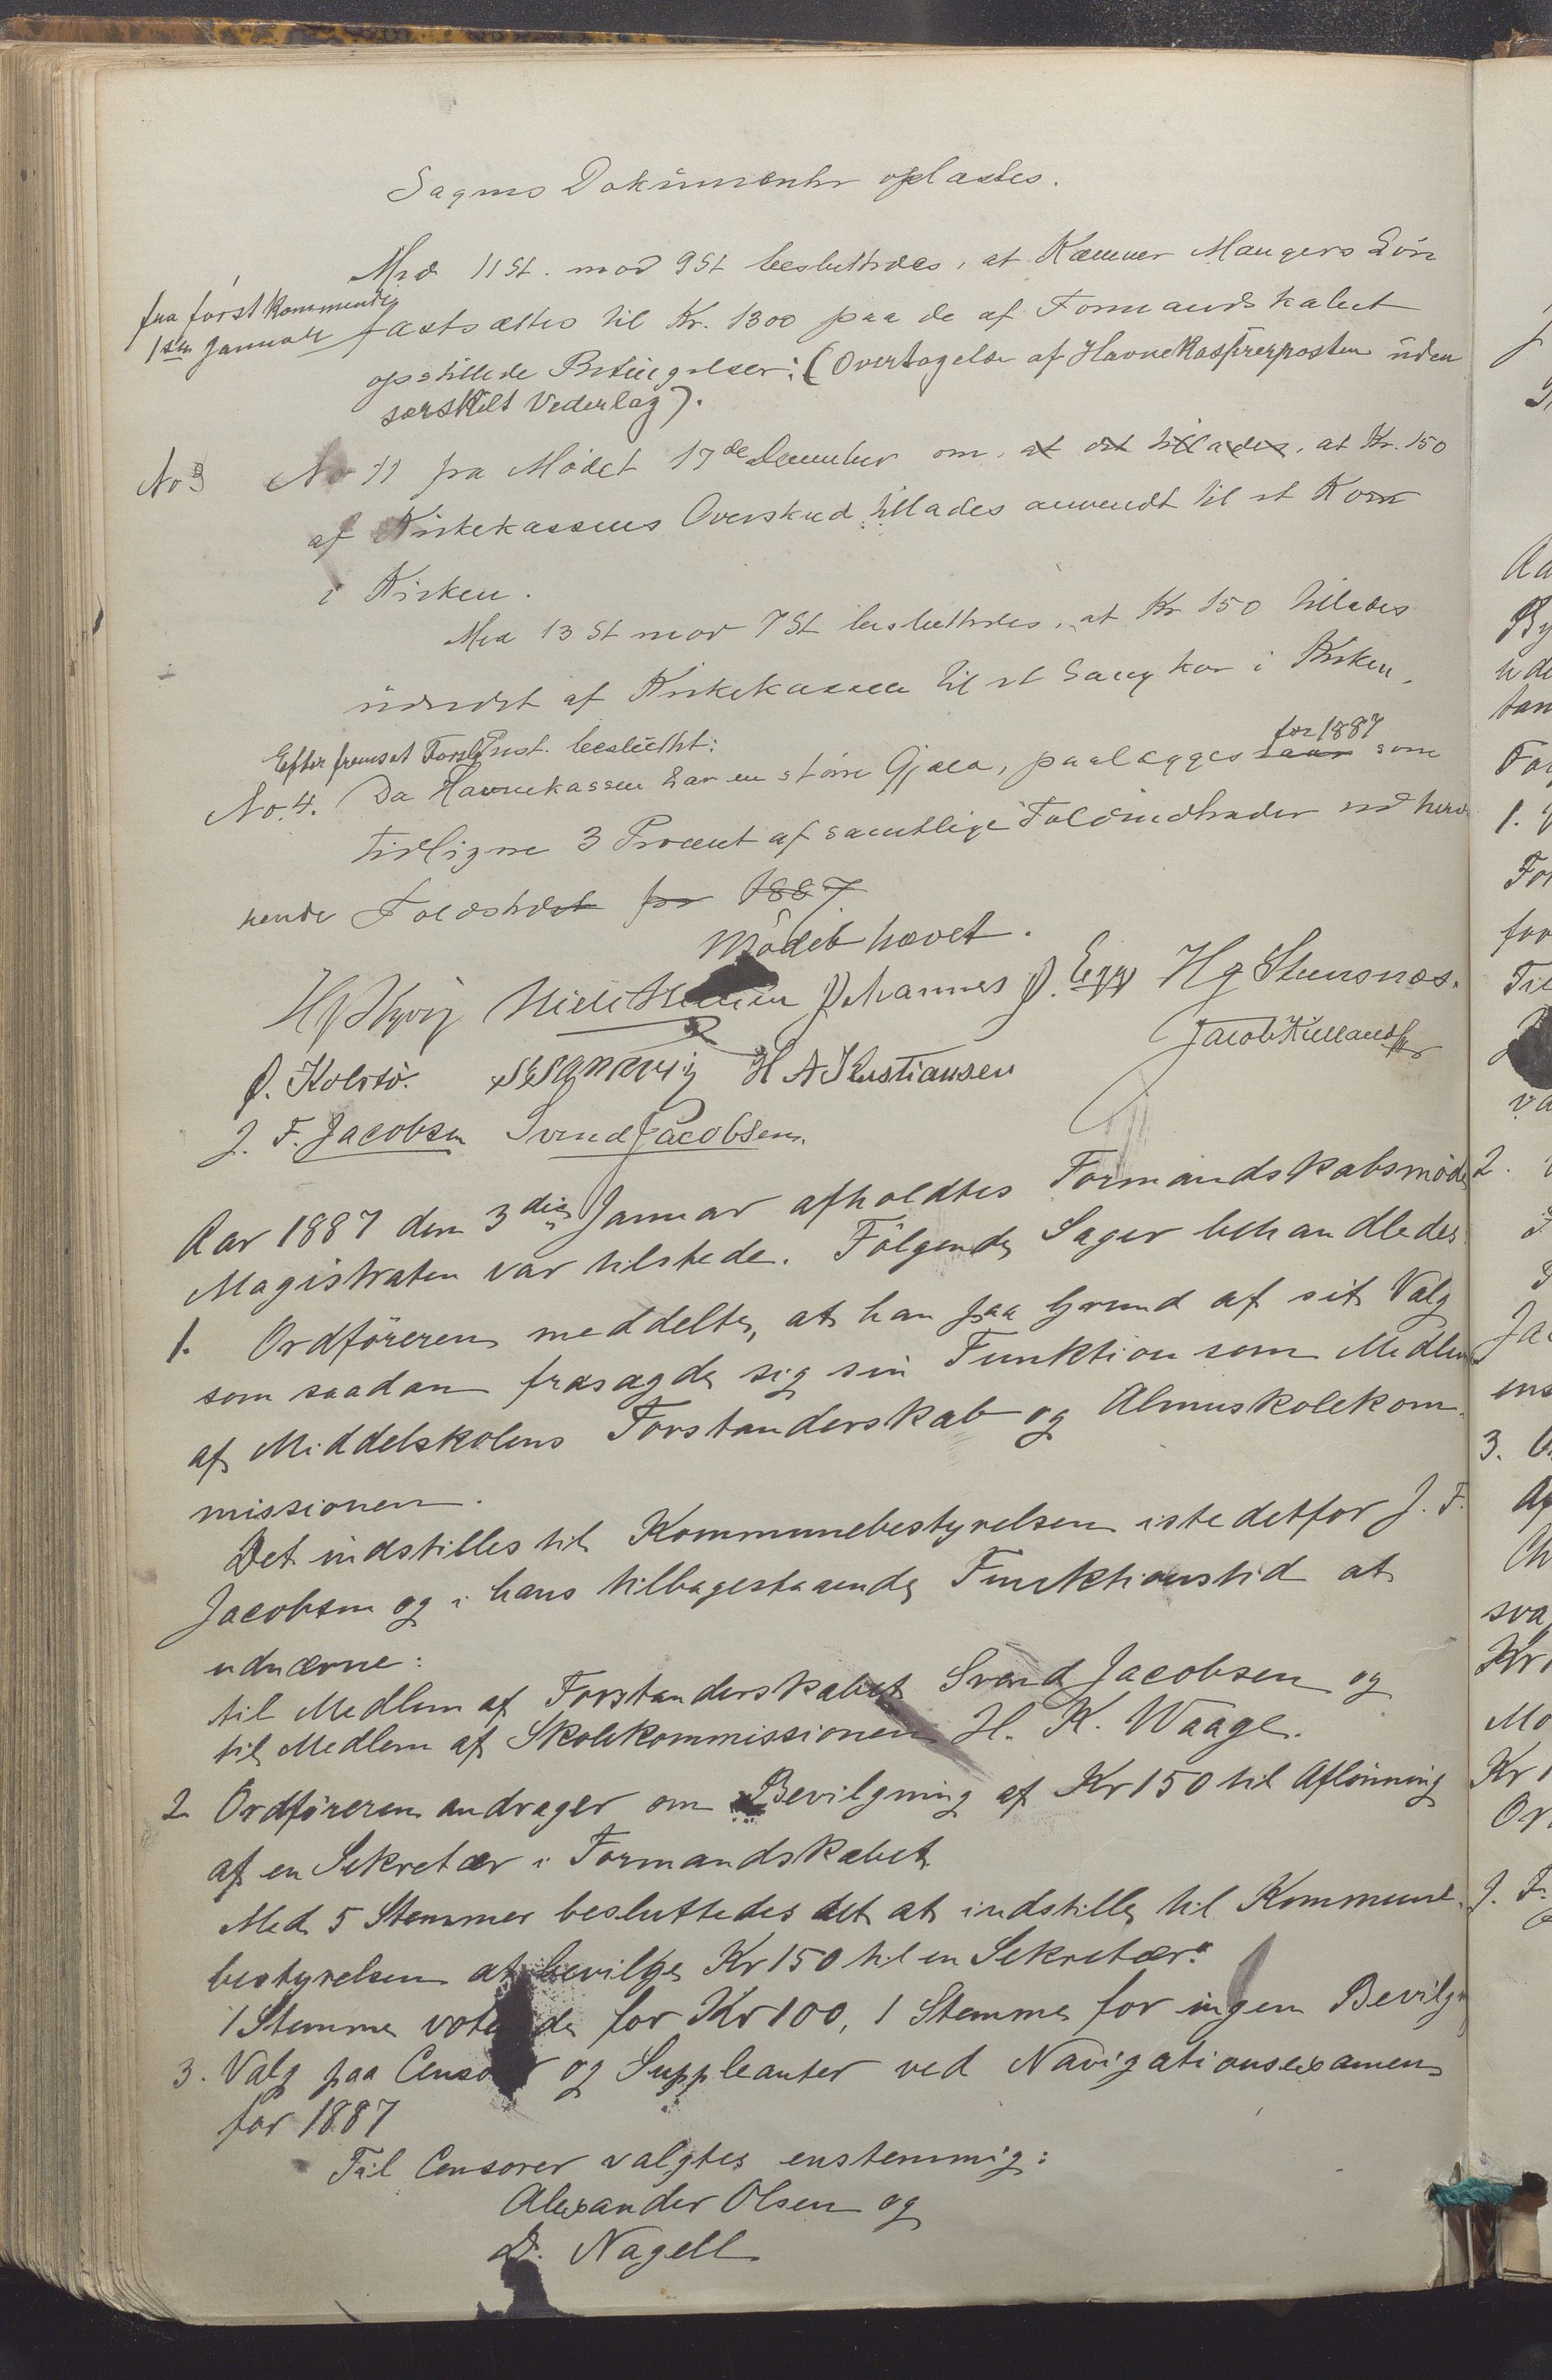 Sagens Dokumenter oplæstes.
Med 11 St. mod 9 St besluttedes, at Kæmner Maugers Løn
fra førstkommende
1ste Januar fastsættes til Kr. 1300 paa de af Formandskabet
opstillede Betingelser: (Overtagelse af Havnekasererposten uden
særskilt Vederlag).
No 3 No 11 fra Mødet 17de December om, at det tillades, at Kr. 150
af Kirkekassens Overskud tillades anvendt til et Kor
i Kirken.
Med 13 St mod 7 St besluttedes, at Kr 150 tillades
udredet af Kirkekassen til et Sangkor i Kirken.
Efter fremsat Forslag enst. besluttet:
for 1887
No. 4. Da Havnekassen har en større Gjæld, paalægges som
tidligere 3 Procent af samtlige Toldindtrader ved herv
rende Toldsted for 1887
Mødet hævet.
Johannes P. Egge Hg Stensnæs.
O. Kolstø. H A Kristiansen Jacob Kielland
J. F. Jacobsen Svend Jacobsen.
Aar 1887 den 3die Januar afholdtes Formandskabsmøde
Magistraten var tilstede. Følgende Sager behandledes
1. Ordføreren meddelte, at han paa Grund af sit Valg
som saadan frasagde sig sin Funktion som Medlem
af Middelskolens Forstanderskab og Almuskolekom-
missionen.
Det indstilles til Kommunebestyrelsen istedetfor J. F.
Jacobsen og i hans tilbagestaaende Funktionstid at
udnævne:
til Medlem af Forstanderskabet Svend Jacobsen og
til Medlem af Skolekommissionen H. K. Waage.
2 Ordføreren andrager om Bevilgning af Kr 150 til Aflønning
af en Sekretær i Formandskabet
Med 5 Stemmer besluttedes det at indstille til Kommune-
bestyrelsen at bevilge Kr 150 til en Sekretær.
1 Stemme voterede for Kr 100, 1 Stemme for ingen Bevilgn
3. Valg paa Censorer og Suppleanter ved Navigationsexamen
for 1887
Til Censorer valgtes enstemmig:
Alexander Olsen og
D. Nagell